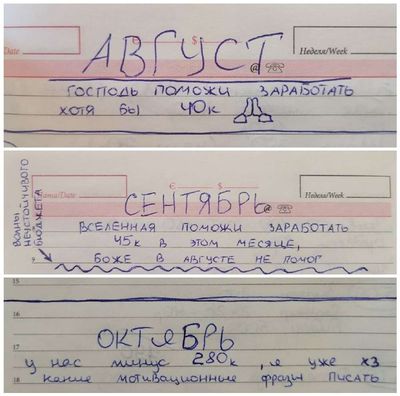 Date
€
$
АВГУСТ
@ ☏
Неделя/Week
ГОСПОДЬ ПОМОЖИ ЗАРАБОТАТЬ
ХОТЯ БЫ 40К
Дата/Date
€
$
Неделя/Week
СЕНТЯБРЬ
@ ☏
ВОЛНЫ
НЕУСТОЙЧИВОГО
БЮДЖЕТА
ВСЕЛЕННАЯ ПОМОЖИ ЗАРАБОТАТЬ
45К В ЭТОМ МЕСЯЦЕ,
9 БОЖЕ В АВГУСТЕ НЕ ПОМОГ
15
16
ОКТЯБРЬ
17
У НАС МИНУС 280К, Я УЖЕ ХЗ
18 КАКИЕ МОТИВАЦИОННЫЕ ФРАЗЫ ПИСАТЬ